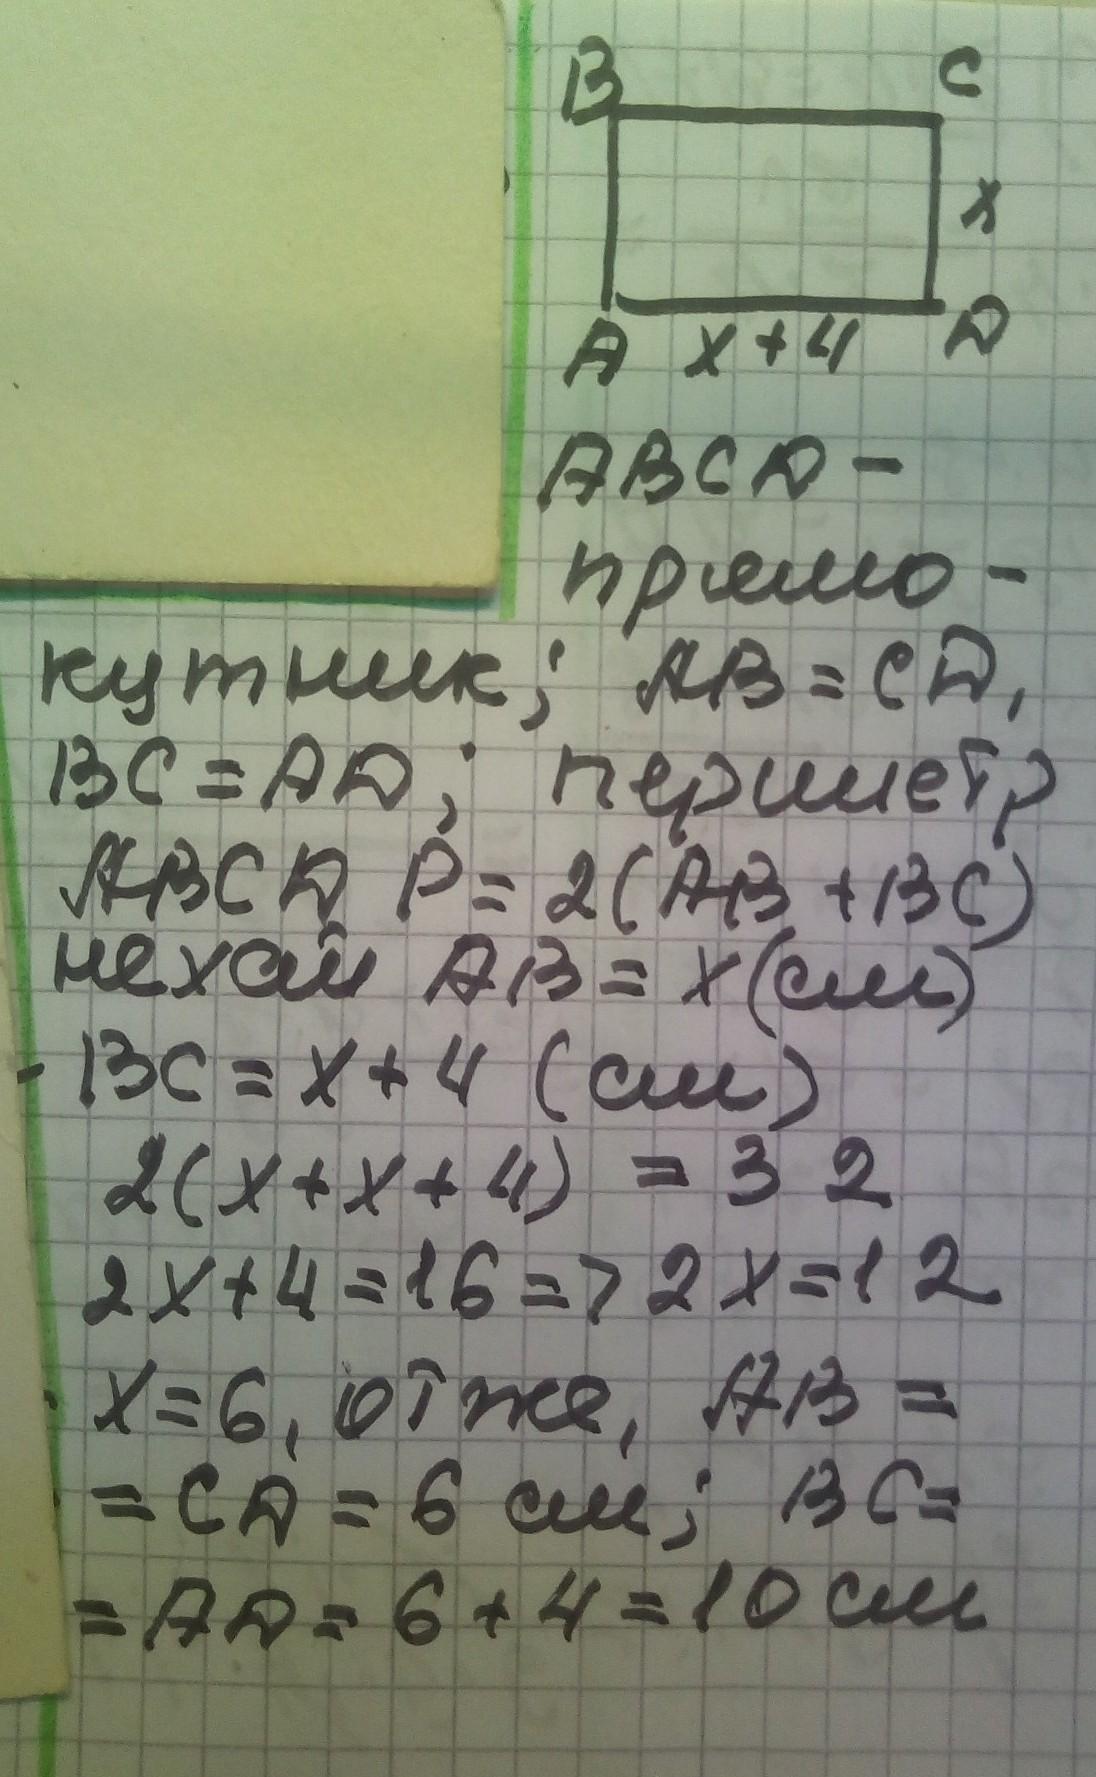 B C
x
A x+4 D
ABCD -
прямо-
кутник; AB = CD,
BC = AD; периметр
ABCD P = 2(AB + BC)
нехай AB = x (см)
- BC = x + 4 (см)
2(x + x + 4) = 32
2x + 4 = 16 => 2x = 12
x = 6, отже, AB =
= CD = 6 см; BC =
= AD = 6 + 4 = 10 см